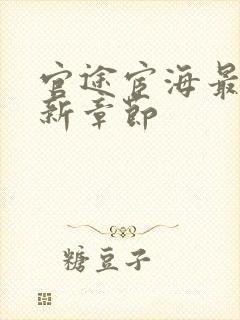 官途宦海最
新章节
糖豆子